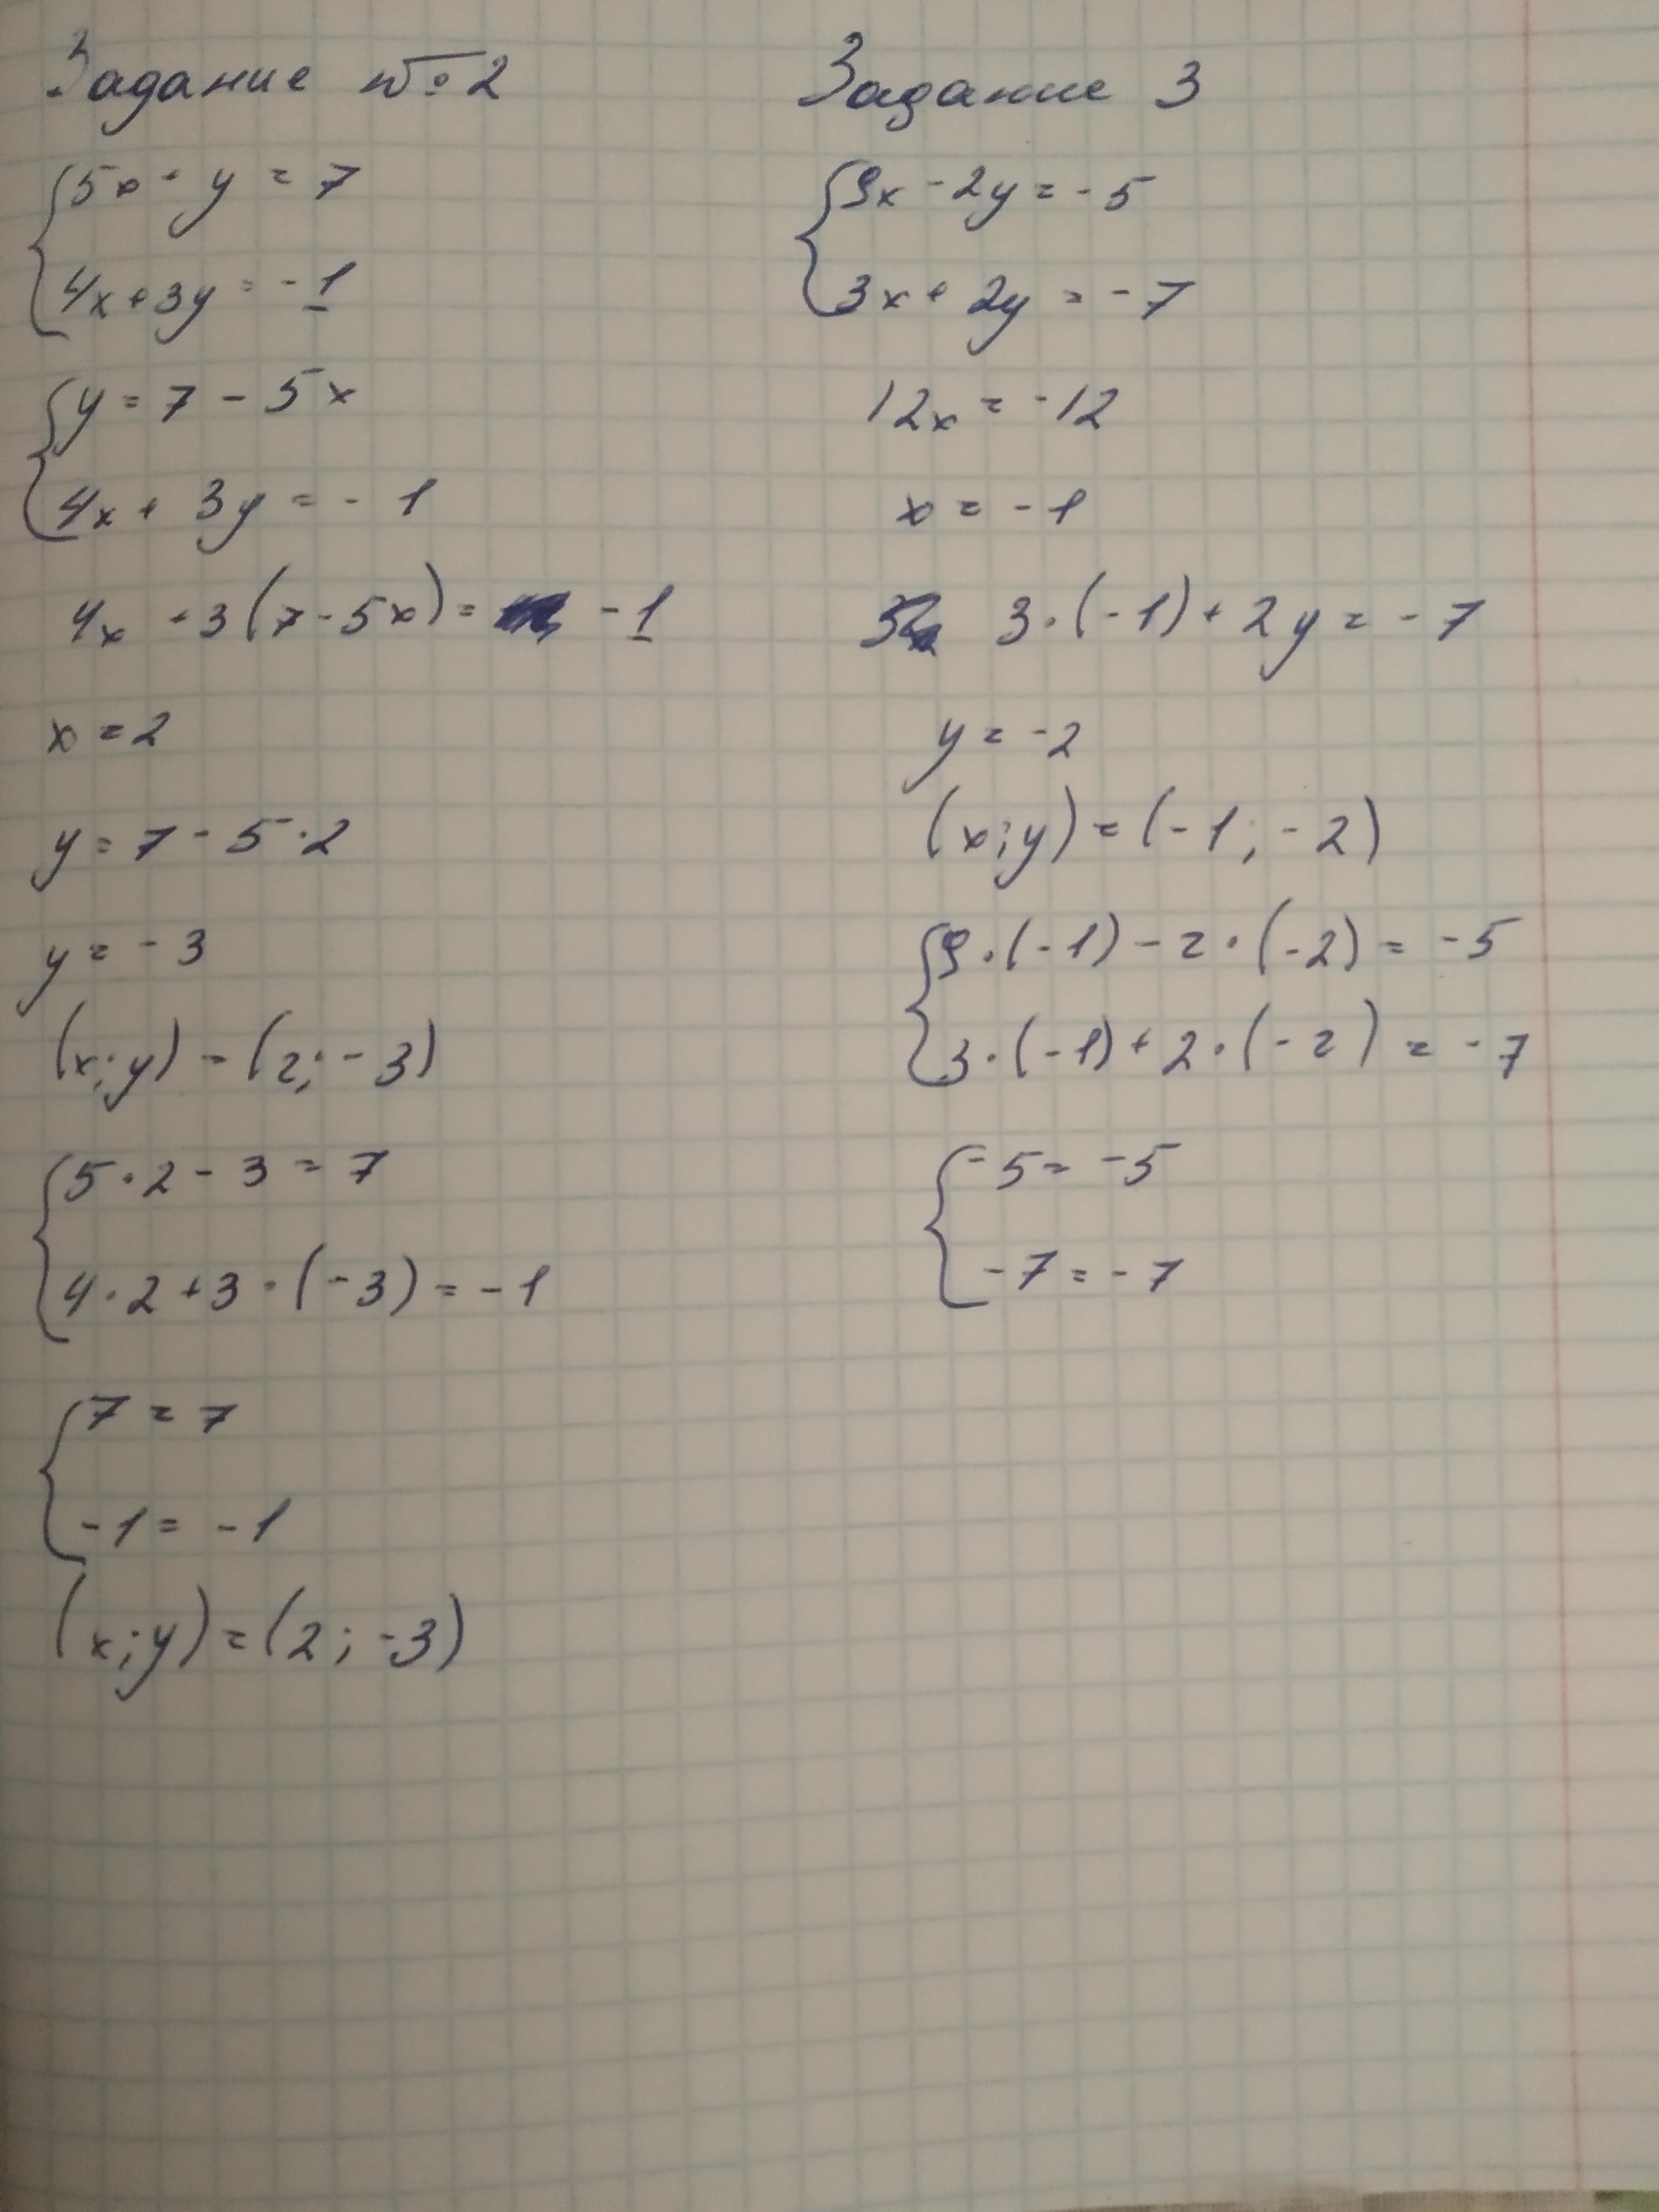 Задание №2
{5x + y = 7
4x + 3y = -1
{y = 7 - 5x
4x + 3y = -1
4x + 3(7 - 5x) = -1
x = 2
y = 7 - 5·2
y = -3
(x; y) = (2; -3)
{5·2 - 3 = 7
4·2 + 3·(-3) = -1
{7 = 7
-1 = -1
(x; y) = (2; -3)
Задание 3
{9x - 2y = -5
3x + 2y = -7
12x = -12
x = -1
3·(-1) + 2y = -7
y = -2
(x; y) = (-1; -2)
{9·(-1) - 2·(-2) = -5
3·(-1) + 2·(-2) = -7
{-5 = -5
-7 = -7